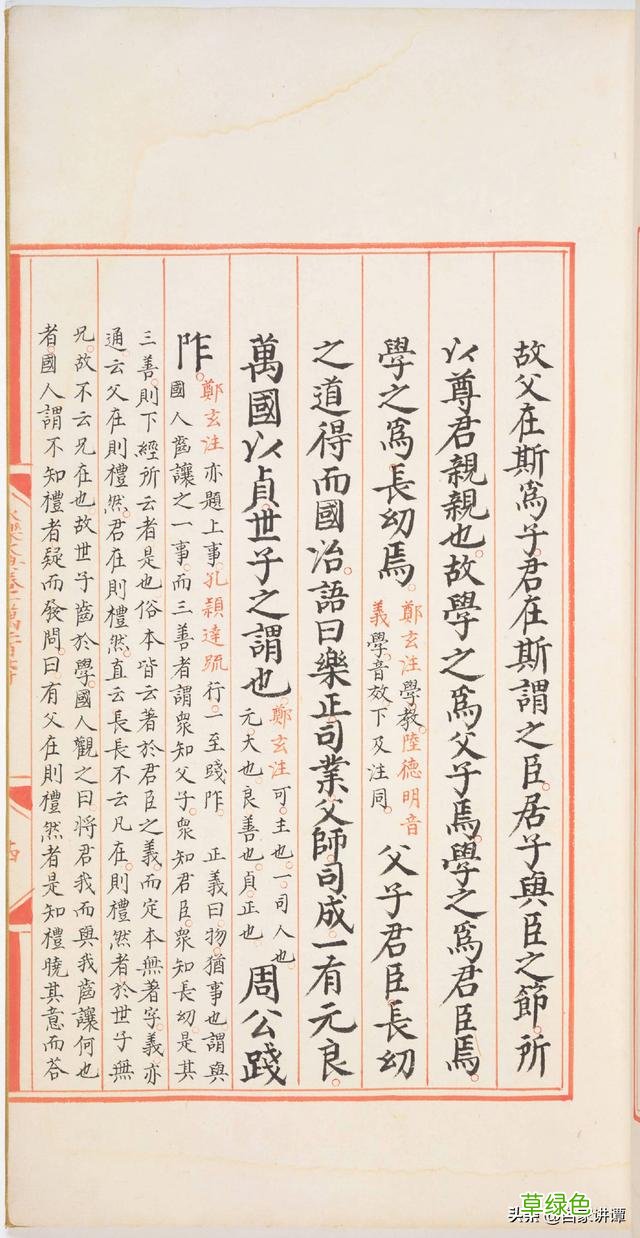 故父在斯爲子君在斯謂之臣居子與臣之節所
以尊君親親也故學之爲父子焉學之爲君臣焉
學之爲長幼焉
鄭玄注學教陸德明音
義學音效下及注同
父子君臣長幼
之道得而國治語曰樂正司業父師司成一有元良
萬國以貞世子之謂也
鄭玄注司主也一司人也
元大也良善也貞正也
周公踐
阼
鄭玄注亦題上事孔穎達疏行一至踐阼 正義曰物猶事也謂與
國人齒讓之一事而三善者謂衆知父子衆知君臣衆知長幼是其
三善則下經所云者是也俗本皆云著於君臣之義而定本無著字義亦
通云父在則禮然君在則禮然直云長長不云兄在則禮然者於世子無
兄故不云兄在也故世子齒於學國人觀之曰將君我而與我齒讓何也
者國人謂不知禮者疑而發問曰有父在則禮然者是知禮曉其意而荅
草绿色
头条 @百家讲谭